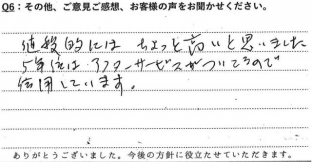 Q6：その他、ご意見ご感想、お客様の声をお聞かせください。
値段的には ちょっと高いと思いました
5年位は アフターサービスがついてるので
信用しています。
ありがとうございました。今後の方針に役立たせていただきます。